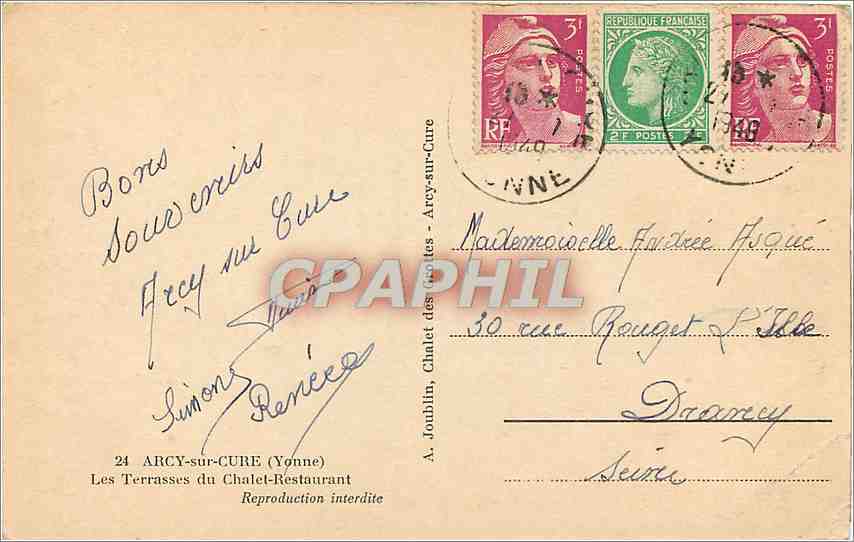 3f
POSTES
RF
REPUBLIQUE FRANÇAISE
2F POSTES
3f
POSTES
RF
15 *
1948
YONNE
15 *
21
1948
Bons
Souvenirs
Arcy sur Cure
Simone
Renée
CPAPHIL
A. Joublin, Chalet des Grottes - Arcy-sur-Cure
Mademoiselle Andrée Asqué
30 rue Rouget L'Isle
Drancy
Seine
24 ARCY-sur-CURE (Yonne)
Les Terrasses du Chalet-Restaurant
Reproduction interdite